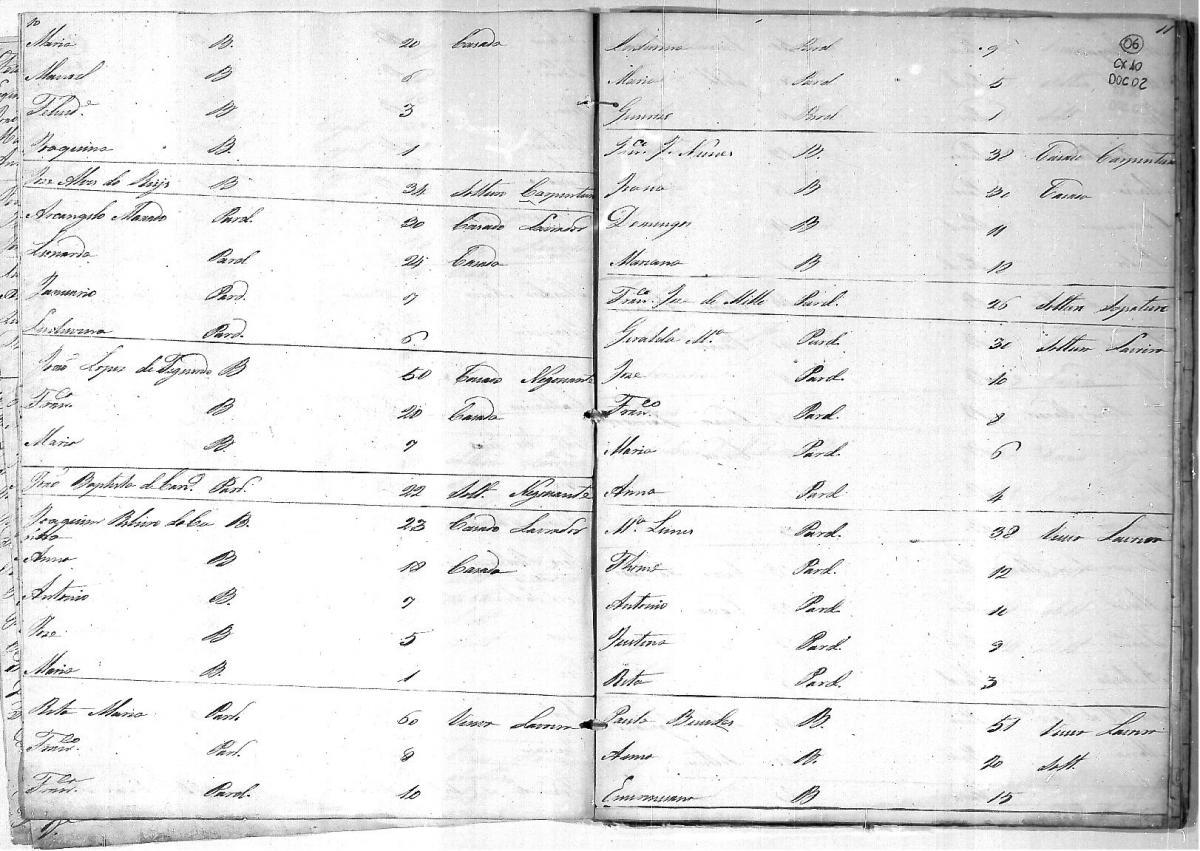 10
Maria B. 20 Casada
Manoel B 6
Felisd.e B 3
Joaquina B. 1
Joze Alves do Reijs B 34 Solteiro Carpenteiro
Arcangelo Pard. 30 Casado Lavrador
Leonarda Pard 24 Casada
Januario Pard. 7
Pard. 6
João Lopes de Figueredo B 50 Casado Negociante
Fran.ca B 28 Casada
Maria B. 7
João Baptista d. Pard. 22 Solt. Negociante
Joaquim Ribeiro B. 23 Casado Lavrador
Anna B 18 Casada
Antonio B. 7
Joze B 5
Maria B. 1
Rita Maria Pard. 60 Viuva
Fran.co Pard. 8
Fran.ca Pard. 10
11
06
CX 10
DOC 02
Pard 9
Maria Pard 5
Pard 1
Fran.co J. Nunes B. 38 Casado Carpenteiro
Joana B 30 Casada
Domingos B 11
Mariana B 10
Fran.co Joze de Mello Pard. 26 Solteiro Sapateiro
Geralda M.a Pard. 30 Solteira
Joze Pard. 10
Fran.co Pard. 8
Maria Pard. 6
Anna Pard 4
M.a Pard. 38 Viuva
Thome Pard. 12
Antonio Pard. 10
Justina Pard. 9
Rita Pard. 3
B. 51
Anna B. 20 Solt.
B 15